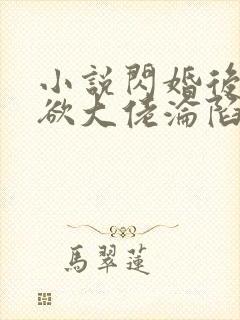 小說閃婚後
欲大佬淪陷
馬翠蓮